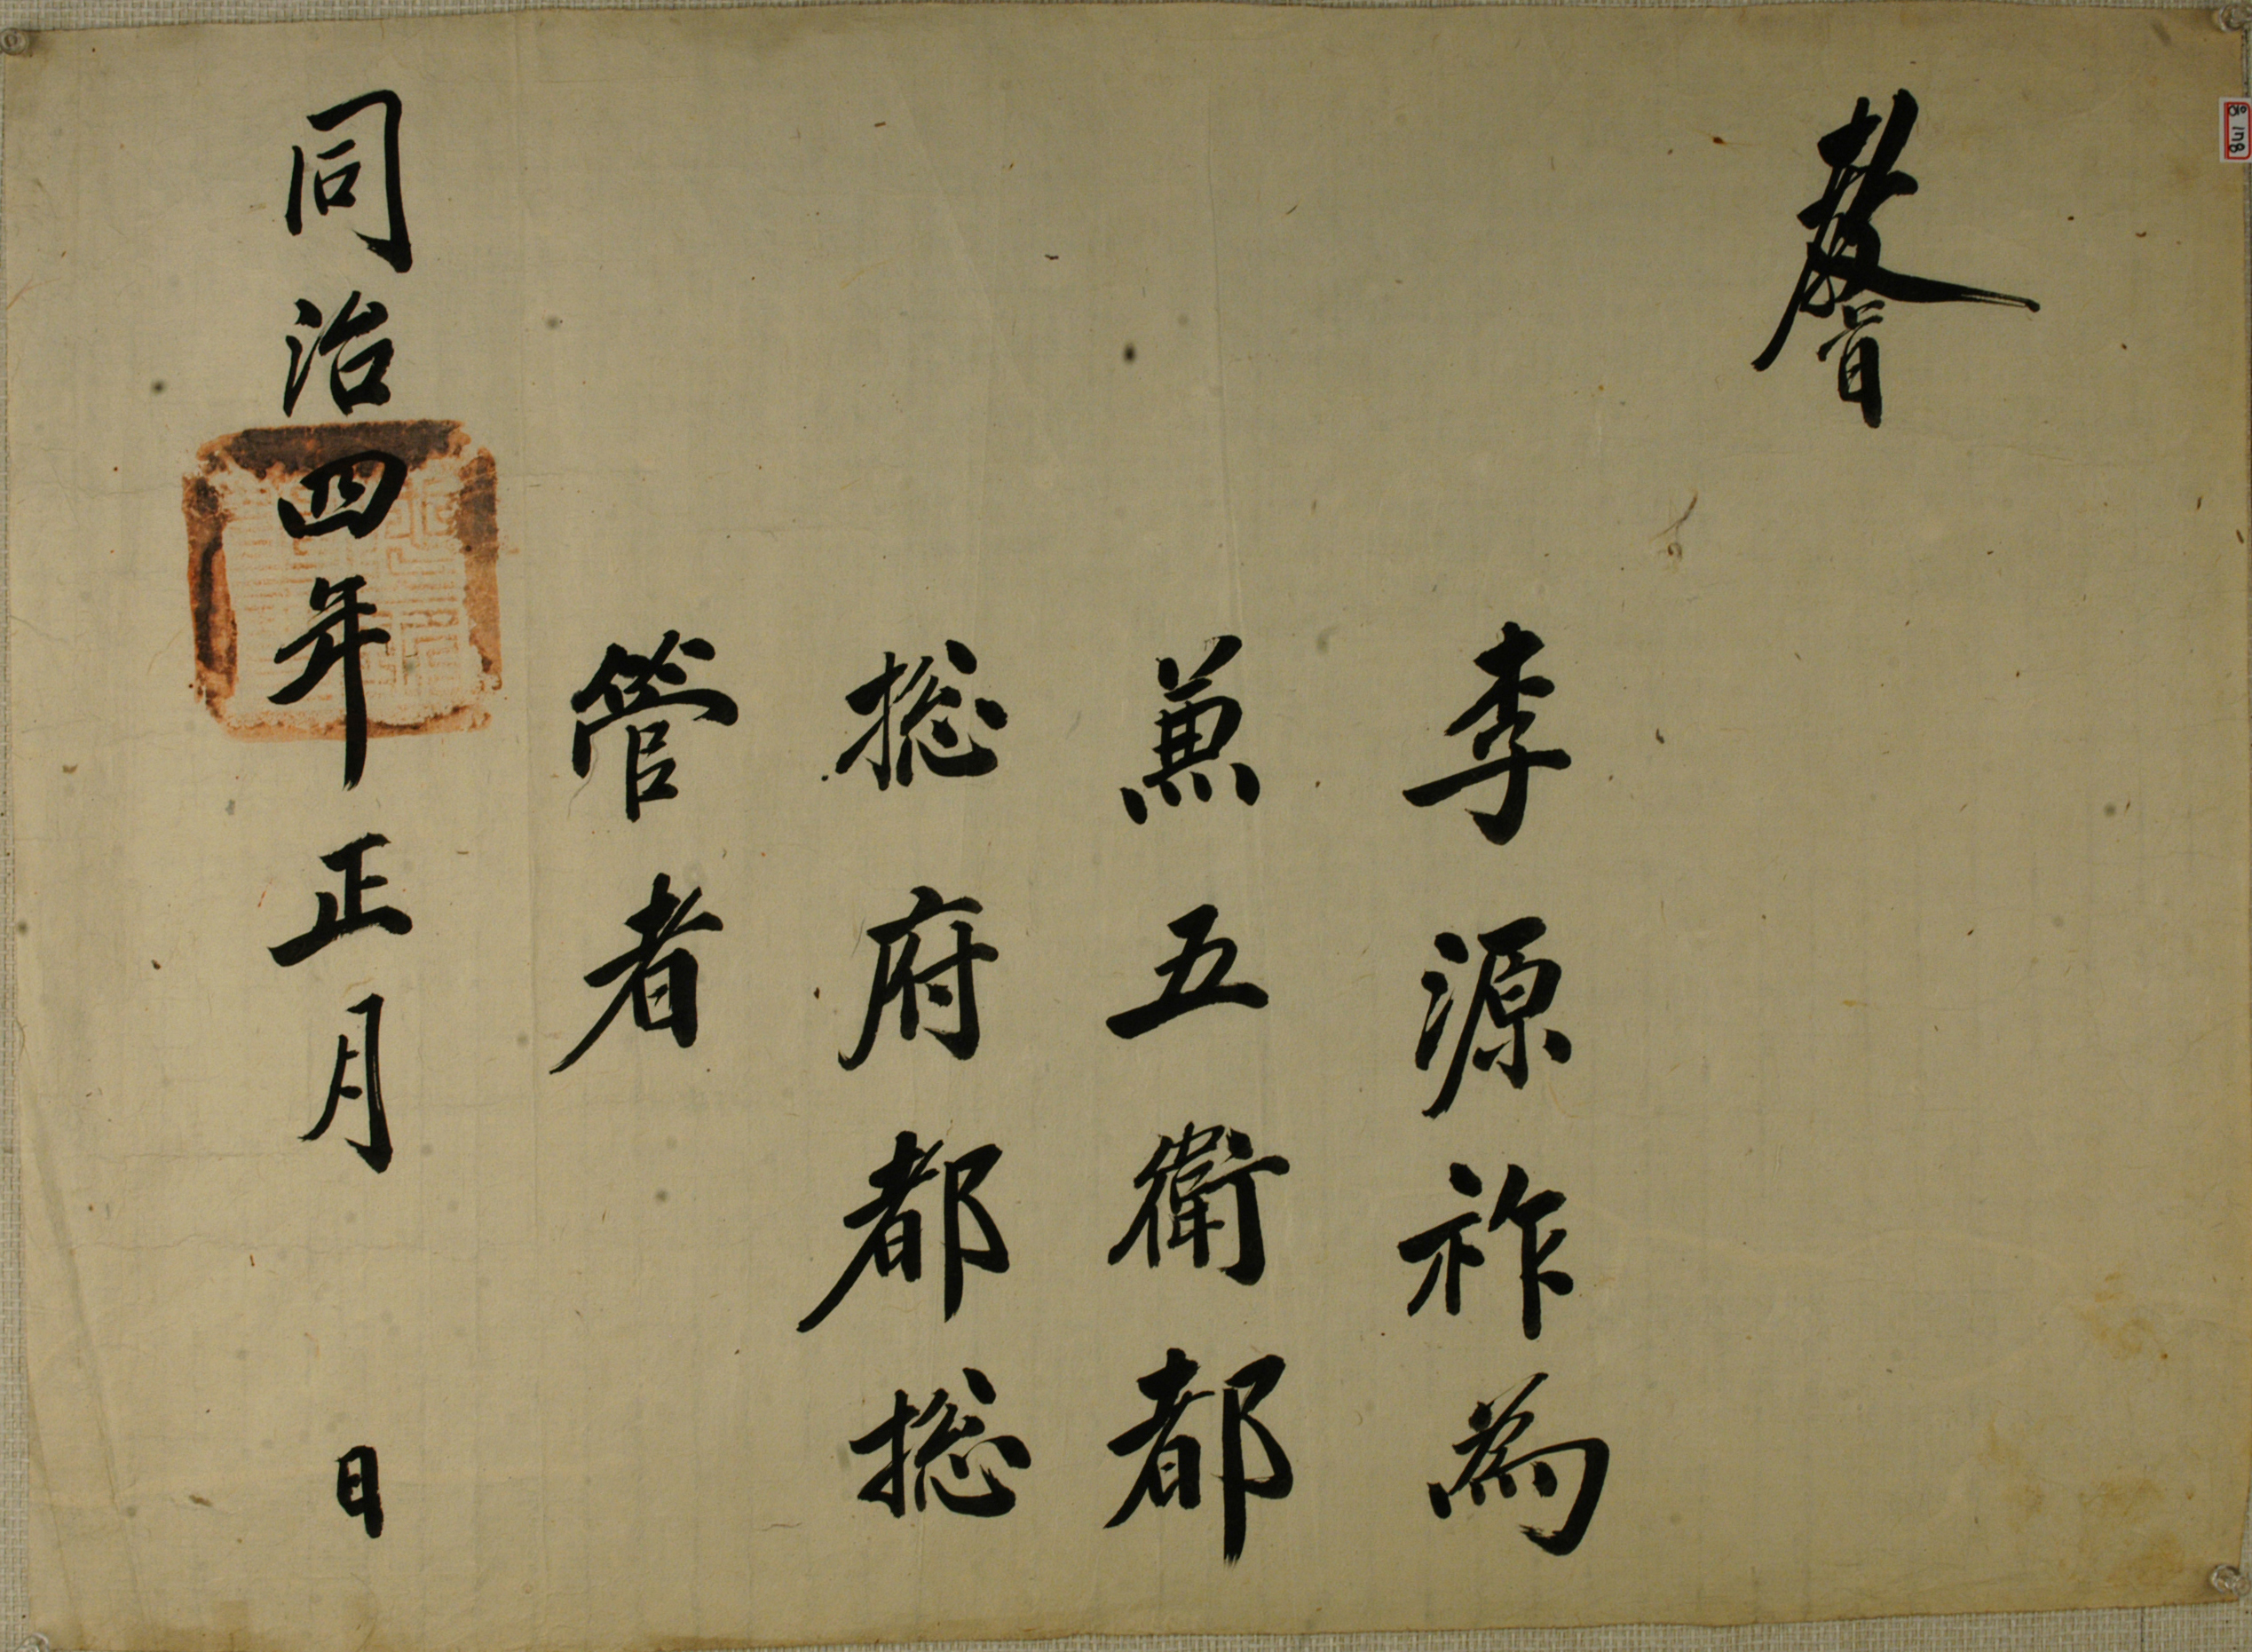 教旨
李源祚為
兼五衛都
摠府都摠
管者
同治四年正月　日
　178